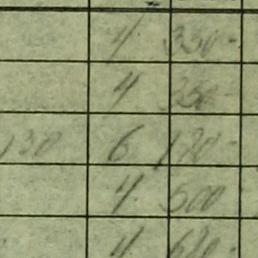 4 330-
4 350-
130 6 180-
4 500
4 680-